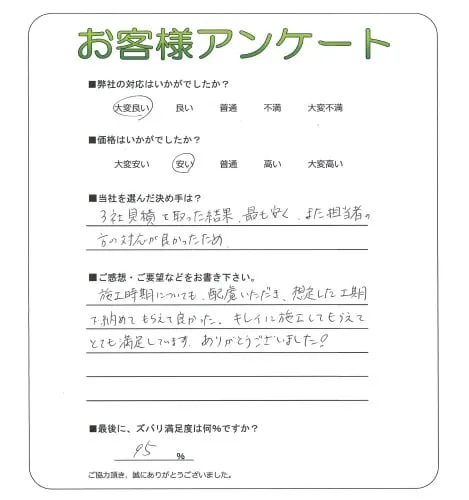 お客様アンケート
■弊社の対応はいかがでしたか？
大変良い 良い 普通 不満 大変不満
■価格はいかがでしたか？
大変安い 安い 普通 高い 大変高い
■当社を選んだ決め手は？
3社見積で取った結果、最も安く、また担当者の
方の対応が良かったため
■ご感想・ご要望などをお書き下さい。
施工時期についても、配慮いただき、想定した工期
で納めてもらえて良かった。キレイに施工してもらえて
とても満足しています。ありがとうございました!
■最後に、ズバリ満足度は何％ですか？
95 %
ご協力頂き、誠にありがとうございました。